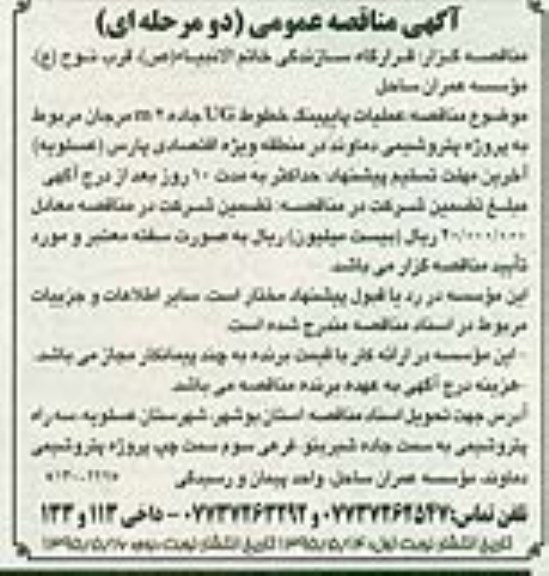 آگهی مناقصه عمومی (دو مرحله ای)
مناقصه گزار: قرارگاه سازندگی خاتم الانبیاء(ص)، قرب نوح (ع)،
مؤسسه عمران ساحل
موضوع مناقصه: عملیات پایپینگ خطوط UG جاده ۲ m مرجان مربوط
به پروژه پتروشیمی دماوند در منطقه ویژه اقتصادی پارس (عسلویه)
آخرین مهلت تسلیم پیشنهاد: حداکثر به مدت ۱۰ روز بعد از درج آگهی
مبلغ تضمین شرکت در مناقصه: تضمین شرکت در مناقصه معادل
۲۰/۰۰۰/۰۰۰ ریال (بیست میلیون) ریال به صورت سفته معتبر و مورد
تأیید مناقصه گزار می باشد.
این مؤسسه در رد یا قبول پیشنهاد مختار است. سایر اطلاعات و جزییات
مربوط در اسناد مناقصه مندرج شده است.
- این مؤسسه در ارائه کار با قیمت برنده به چند پیمانکار مجاز می باشد.
-هزینه درج آگهی به عهده برنده مناقصه می باشد.
آدرس جهت تحویل اسناد مناقصه: استان بوشهر، شهرستان عسلویه، سه راه
پتروشیمی به سمت جاده شیرینو، فرعی سوم سمت چپ پروژه پتروشیمی
دماوند، مؤسسه عمران ساحل، واحد پیمان و رسیدگی
تلفن تماس: ۰۷۷۳۷۲۶۲۵۴۷ و ۰۷۷۳۷۲۶۳۲۹۲ – داخی ۱۱۳ و ۱۳۳
تاریخ انتشار نوبت اول: ۱۳۹۵/۵/۱۶ تاریخ انتشار نوبت دوم: ۱۳۹۵/۵/۱۷